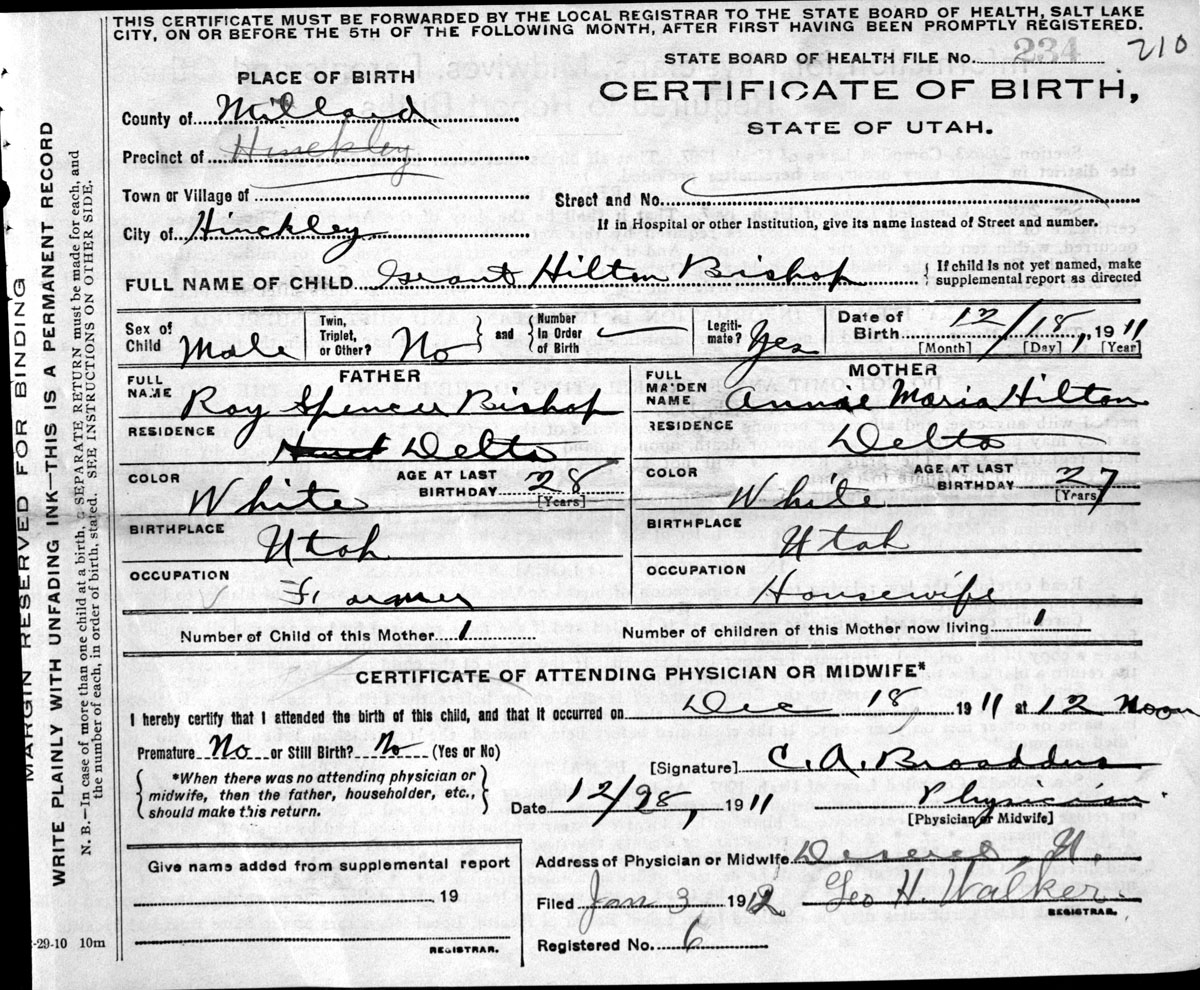 THIS CERTIFICATE MUST BE FORWARDED BY THE LOCAL REGISTRAR TO THE STATE BOARD OF HEALTH, SALT LAKE
CITY, ON OR BEFORE THE 5TH OF THE FOLLOWING MONTH, AFTER FIRST HAVING BEEN PROMPTLY REGISTERED.
STATE BOARD OF HEALTH FILE No. 234 210
PLACE OF BIRTH
CERTIFICATE OF BIRTH,
STATE OF UTAH.
County of Millard
Precinct of Hinckley
Town or Village of
Street and No.
City of Hinckley
If in Hospital or other Institution, give its name instead of Street and number.
FULL NAME OF CHILD Grant Hilton Bishop { If child is not yet named, make
supplemental report as directed
Sex of Child Male
Twin, Triplet, or Other? No } and { Number In Order of Birth
Legiti-mate? Yes
Date of Birth 12/18, 1911
[Month] [Day] [Year]
FATHER
FULL NAME Roy Spencer Bishop
RESIDENCE Delta
COLOR White AGE AT LAST BIRTHDAY 28 [Years]
BIRTHPLACE Utah
OCCUPATION Farmer
MOTHER
FULL MAIDEN NAME Annae Maria Hilton
RESIDENCE Delta
COLOR White AGE AT LAST BIRTHDAY 27 [Years]
BIRTHPLACE Utah
OCCUPATION Housewife
Number of Child of this Mother 1 Number of children of this Mother now living 1
CERTIFICATE OF ATTENDING PHYSICIAN OR MIDWIFE*
I hereby certify that I attended the birth of this child, and that it occurred on Dec 18 1911 at 12 Noon
Premature No or Still Birth? No (Yes or No)
{ *When there was no attending physician or
midwife, then the father, householder, etc.,
should make this return. }
[Signature] C. A. Broaddus
Date 12/28, 1911 Physician
[Physician or Midwife]
Give name added from supplemental report
19
REGISTRAR.
Address of Physician or Midwife Deseret, U.
Filed Jan 3 1912 Geo H. Walker
REGISTRAR.
Registered No. 6
MARGIN RESERVED FOR BINDING
WRITE PLAINLY WITH UNFADING INK—THIS IS A PERMANENT RECORD
N. B.—In case of more than one child at a birth, a SEPARATE RETURN must be made for each, and
the number of each, in order of birth, stated. SEE INSTRUCTIONS ON OTHER SIDE.
-29-10 10m